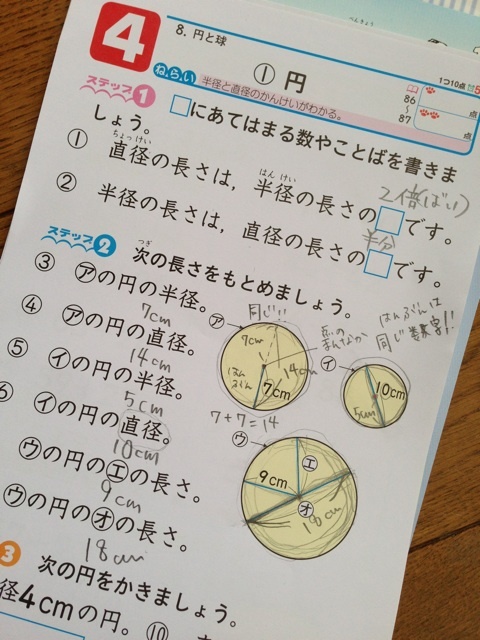 4
8. 円と球
① 円
1つ10点
ねらい 半径と直径のかんけいがわかる。
86〜87
点
点
ステップ1
□にあてはまる数やことばを書きましょう。
① 直径の長さは，半径の長さの□です。
ちょっけい
はんけい
2倍(ばい)
② 半径の長さは，直径の長さの□です。
半分
ステップ2 次の長さをもとめましょう。
つぎ
③ アの円の半径。
7cm
④ アの円の直径。
14cm
⑤ イの円の半径。
5cm
⑥ イの円の直径。
10cm
ウの円のエの長さ。
9cm
ウの円のオの長さ。
18cm
同じ!!
ア
7cm
はんぶん
7cm
14cm
7+7=14
まんなか
はんぶんは
同じ数字!!
イ
10cm
5cm
ウ
エ
9cm
オ
18cm
3 次の円をかきましょう。
径4cmの円。 ⑩